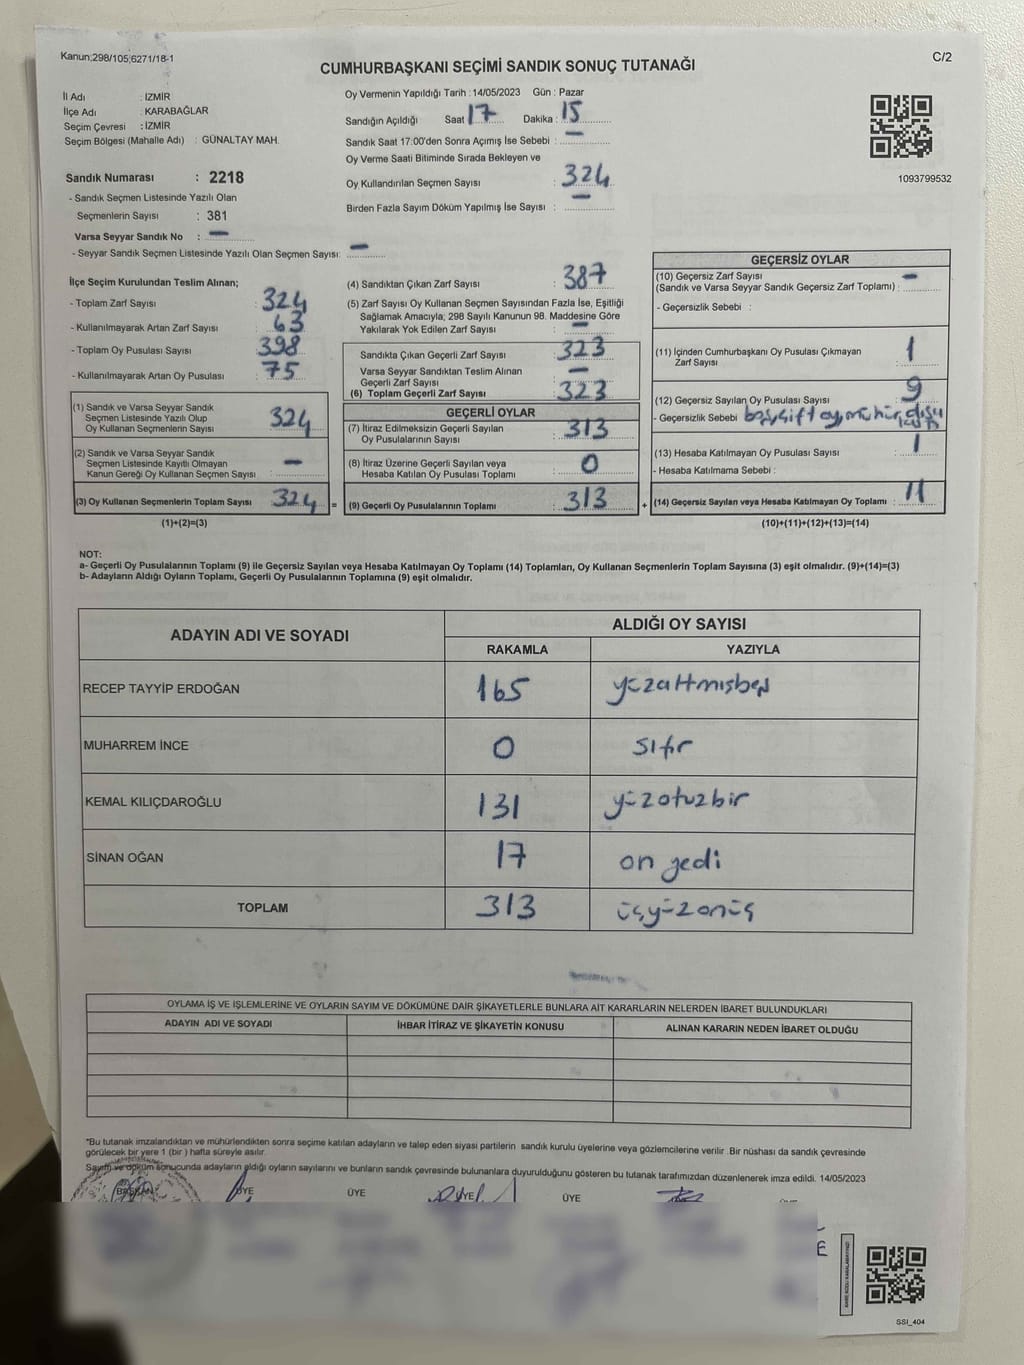 Kanun;298/105;6271/18-1
C/2
CUMHURBAŞKANI SEÇİMİ SANDIK SONUÇ TUTANAĞI
İl Adı : İZMİR
İlçe Adı : KARABAĞLAR
Seçim Çevresi : İZMİR
Seçim Bölgesi (Mahalle Adı) : GÜNALTAY MAH.
Sandık Numarası : 2218
- Sandık Seçmen Listesinde Yazılı Olan
Seçmenlerin Sayısı : 381
Varsa Seyyar Sandık No : —
- Seyyar Sandık Seçmen Listesinde Yazılı Olan Seçmen Sayısı: —
Oy Vermenin Yapıldığı Tarih : 14/05/2023 Gün : Pazar
Sandığın Açıldığı Saat 17 Dakika : 15
Sandık Saat 17:00'den Sonra Açımış İse Sebebi : —
Oy Verme Saati Bitiminde Sırada Bekleyen ve
Oy Kullandırılan Seçmen Sayısı : 324
Birden Fazla Sayım Döküm Yapılmış İse Sayısı : —
1093799532
İlçe Seçim Kurulundan Teslim Alınan;
- Toplam Zarf Sayısı : 324
- Kullanılmayarak Artan Zarf Sayısı : 63
- Toplam Oy Pusulası Sayısı : 398
- Kullanılmayarak Artan Oy Pusulası : 75
(1) Sandık ve Varsa Seyyar Sandık
Seçmen Listesinde Yazılı Olup
Oy Kullanan Seçmenlerin Sayısı 324
(2) Sandık ve Varsa Seyyar Sandık
Seçmen Listesinde Kayıtlı Olmayan
Kanun Gereği Oy Kullanan Seçmen Sayısı : —
(3) Oy Kullanan Seçmenlerin Toplam Sayısı 324 =
(1)+(2)=(3)
(4) Sandıktan Çıkan Zarf Sayısı : 387
(5) Zarf Sayısı Oy Kullanan Seçmen Sayısından Fazla İse, Eşitliği
Sağlamak Amacıyla; 298 Sayılı Kanunun 98. Maddesine Göre
Yakılarak Yok Edilen Zarf Sayısı : —
Sandıkta Çıkan Geçerli Zarf Sayısı : 323
Varsa Seyyar Sandıktan Teslim Alınan
Geçerli Zarf Sayısı : —
(6) Toplam Geçerli Zarf Sayısı : 323
GEÇERLİ OYLAR
(7) İtiraz Edilmeksizin Geçerli Sayılan
Oy Pusulalarının Sayısı : 313
(8) İtiraz Üzerine Geçerli Sayılan veya
Hesaba Katılan Oy Pusulası Toplamı : 0
(9) Geçerli Oy Pusulalarının Toplamı : 313 +
GEÇERSİZ OYLAR
(10) Geçersiz Zarf Sayısı
(Sandık ve Varsa Seyyar Sandık Geçersiz Zarf Toplamı) : —
- Geçersizlik Sebebi :
(11) İçinden Cumhurbaşkanı Oy Pusulası Çıkmayan
Zarf Sayısı : 1
(12) Geçersiz Sayılan Oy Pusulası Sayısı : 9
- Geçersizlik Sebebi
(13) Hesaba Katılmayan Oy Pusulası Sayısı : 1
- Hesaba Katılmama Sebebi :
(14) Geçersiz Sayılan veya Hesaba Katılmayan Oy Toplamı : 11
(10)+(11)+(12)+(13)=(14)
NOT:
a- Geçerli Oy Pusulalarının Toplamı (9) ile Geçersiz Sayılan veya Hesaba Katılmayan Oy Toplamı (14) Toplamları, Oy Kullanan Seçmenlerin Toplam Sayısına (3) eşit olmalıdır. (9)+(14)=(3)
b- Adayların Aldığı Oyların Toplamı, Geçerli Oy Pusulalarının Toplamına (9) eşit olmalıdır.
ADAYIN ADI VE SOYADI ALDIĞI OY SAYISI
RAKAMLA YAZIYLA
RECEP TAYYİP ERDOĞAN 165 yüzaltmışbeş
MUHARREM İNCE 0 sıfır
KEMAL KILIÇDAROĞLU 131 yüzotuzbir
SİNAN OĞAN 17 on yedi
TOPLAM 313 üçyüzonüç
OYLAMA İŞ VE İŞLEMLERİNE VE OYLARIN SAYIM VE DÖKÜMÜNE DAİR ŞİKAYETLERLE BUNLARA AİT KARARLARIN NELERDEN İBARET BULUNDUKLARI
ADAYIN ADI VE SOYADI İHBAR İTİRAZ VE ŞİKAYETİN KONUSU ALINAN KARARIN NEDEN İBARET OLDUĞU
*Bu tutanak imzalandıktan ve mühürlendikten sonra seçime katılan adayların ve talep eden siyasi partilerin sandık kurulu üyelerine veya gözlemcilerine verilir. Bir nüshası da sandık çevresinde
görülecek bir yere 1 (bir ) hafta süreyle asılır.
Sayım ve döküm sonucunda adayların aldığı oyların sayılarını ve bunların sandık çevresinde bulunanlara duyurulduğunu gösteren bu tutanak tarafımızdan düzenlenerek imza edildi. 14/05/2023
BAŞKAN ÜYE ÜYE ÜYE ÜYE
SSI_404